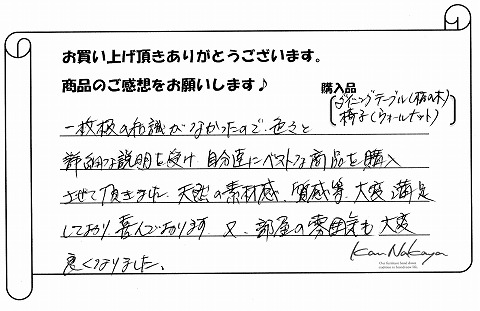 お買い上げ頂きありがとうございます。
商品のご感想をお願いします♪
購入品
ダイニングテーブル(栃の木)
椅子(ウォールナット)
一枚板の知識がなかったので、色々と
詳細な説明を受け 自分達にベストな商品を購入
させて頂きました。天然の素材感、質感等、大変満足
しており、喜んでおります 又、部屋の雰囲気も大変
良くなりました。
Kan Nakaya